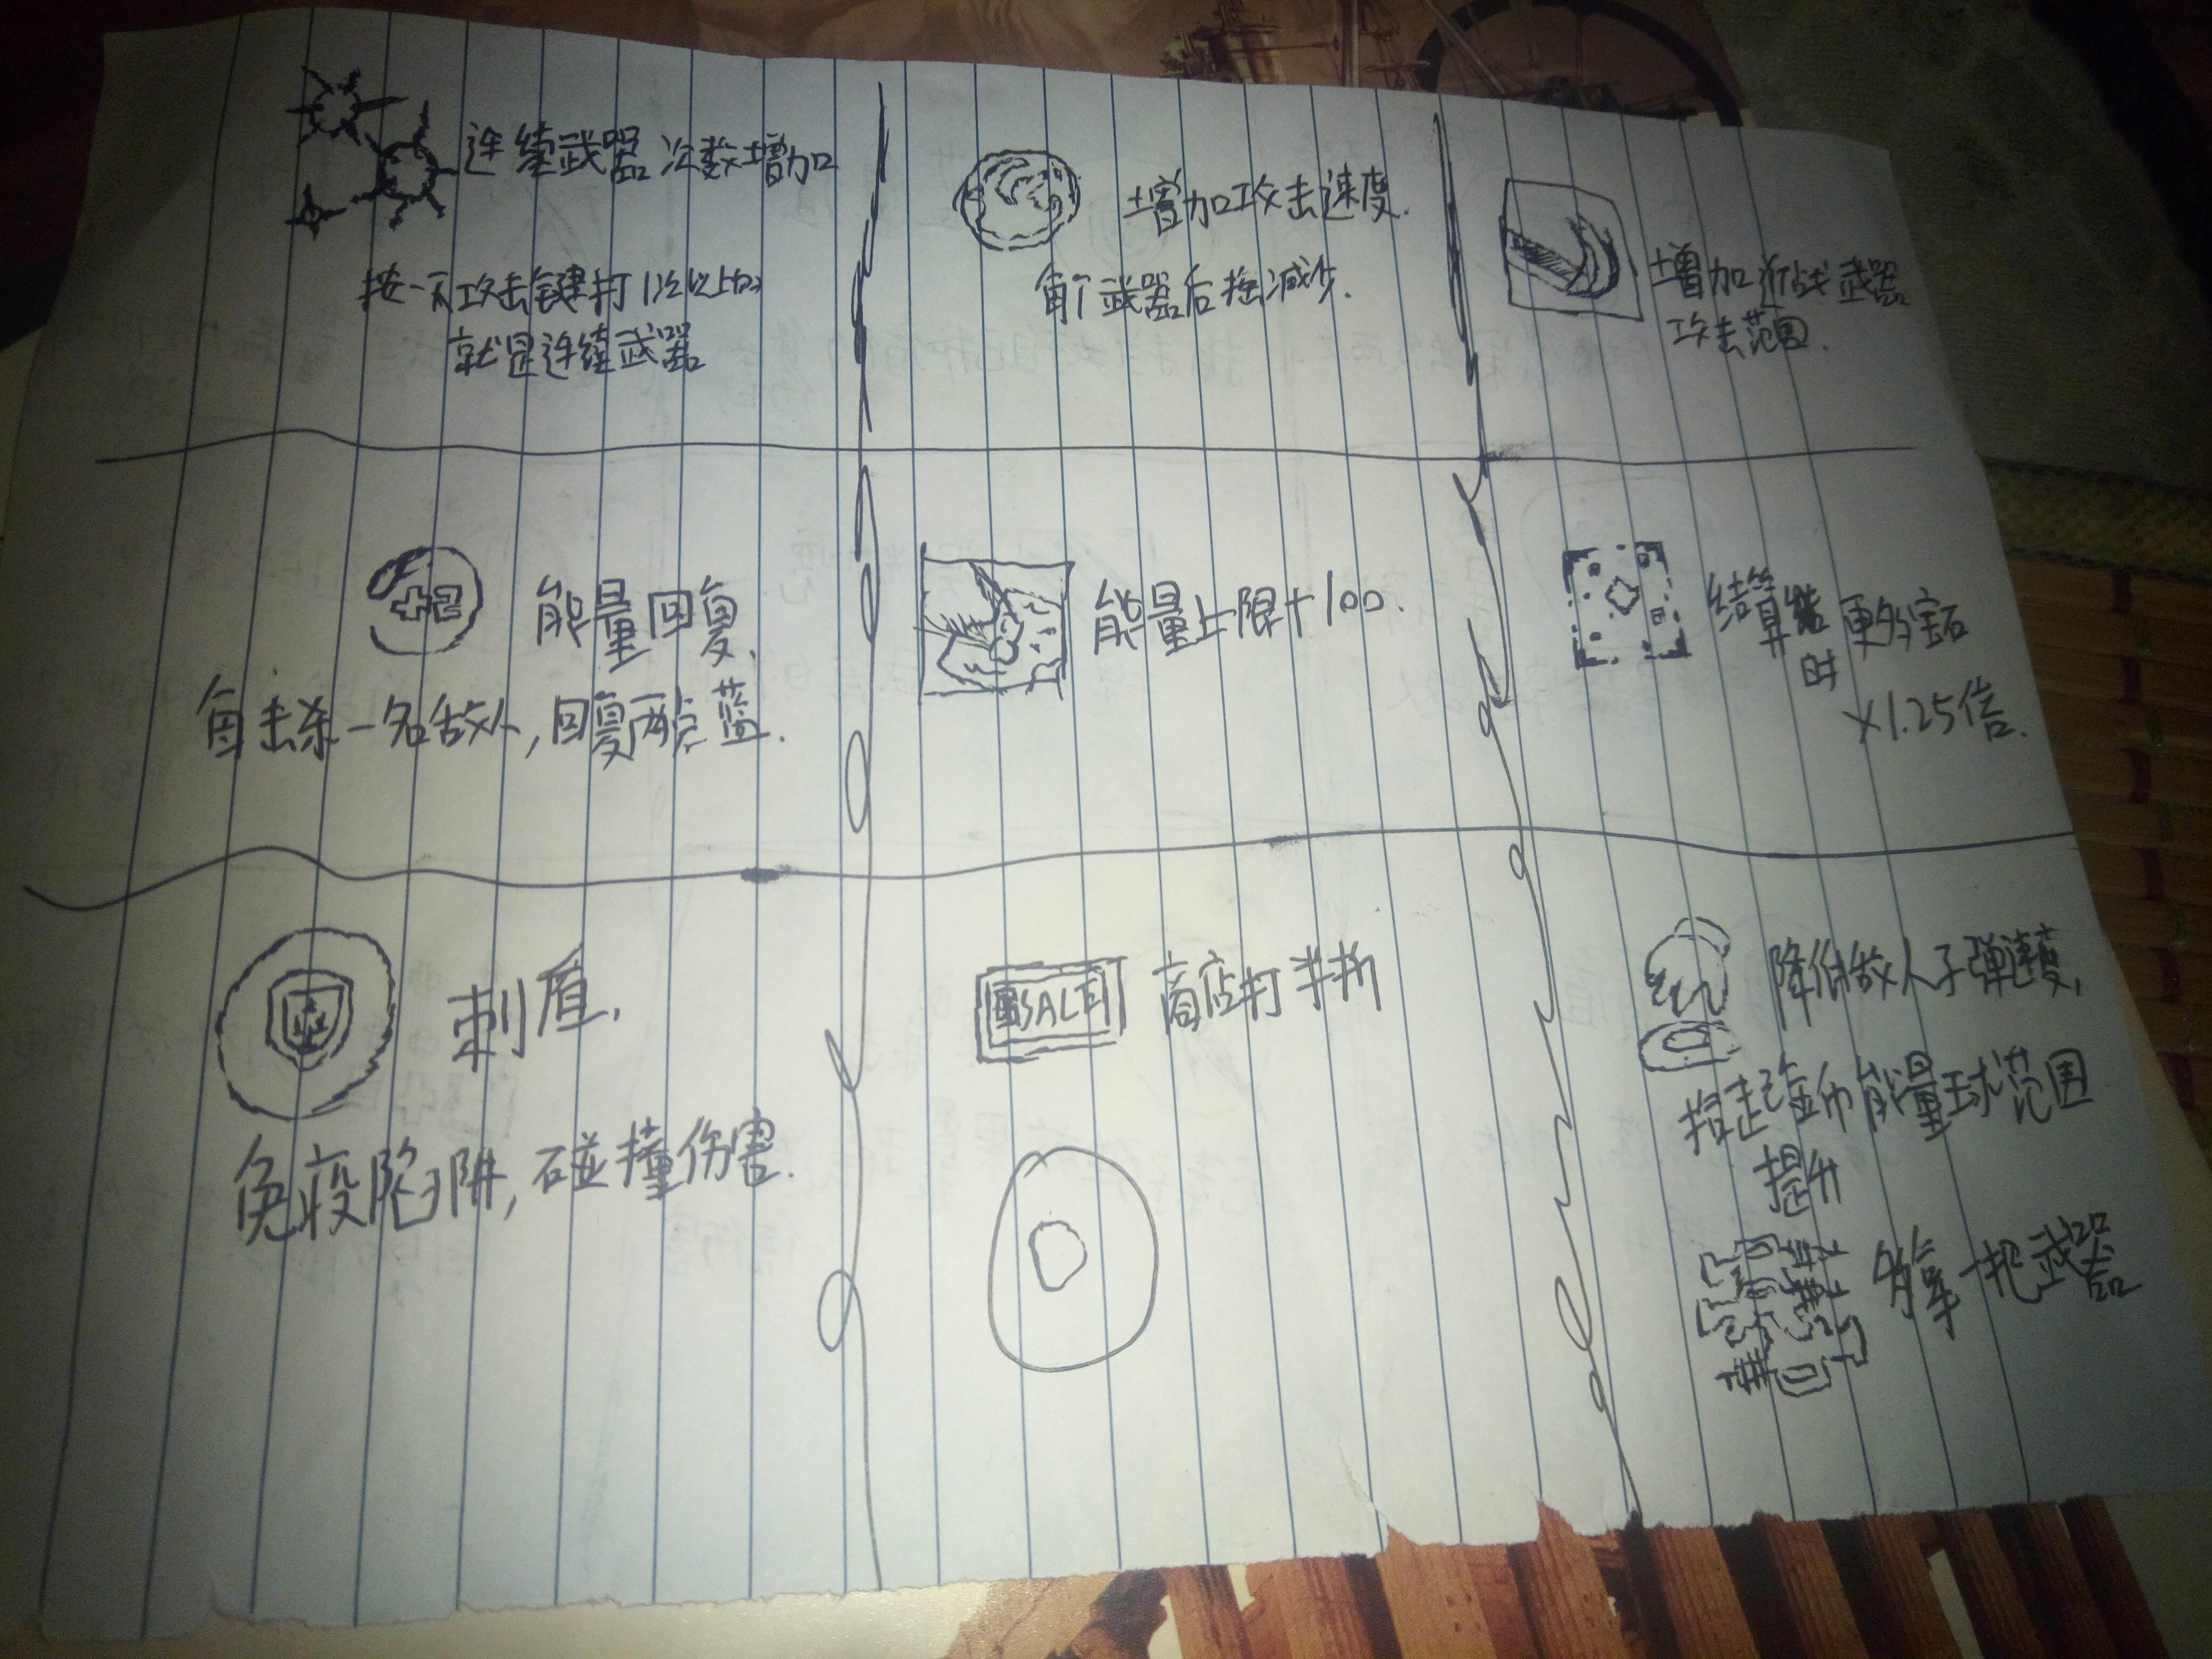 连续武器次数增加
按一下攻击键打1次以上的
就是连续武器
增加攻击速度.
每个武器后摇减少.
增加近战武器
攻击范围.
+2
能量回复.
每击杀一名敌人,回复两点蓝.
能量上限+100.
结算
时 更多宝石
×1.25倍.
刺盾,
免疫陷阱,碰撞伤害.
SALE
商店打半折
降低敌人子弹速度,
捡起金币能量球范围
提升
多拿一把武器